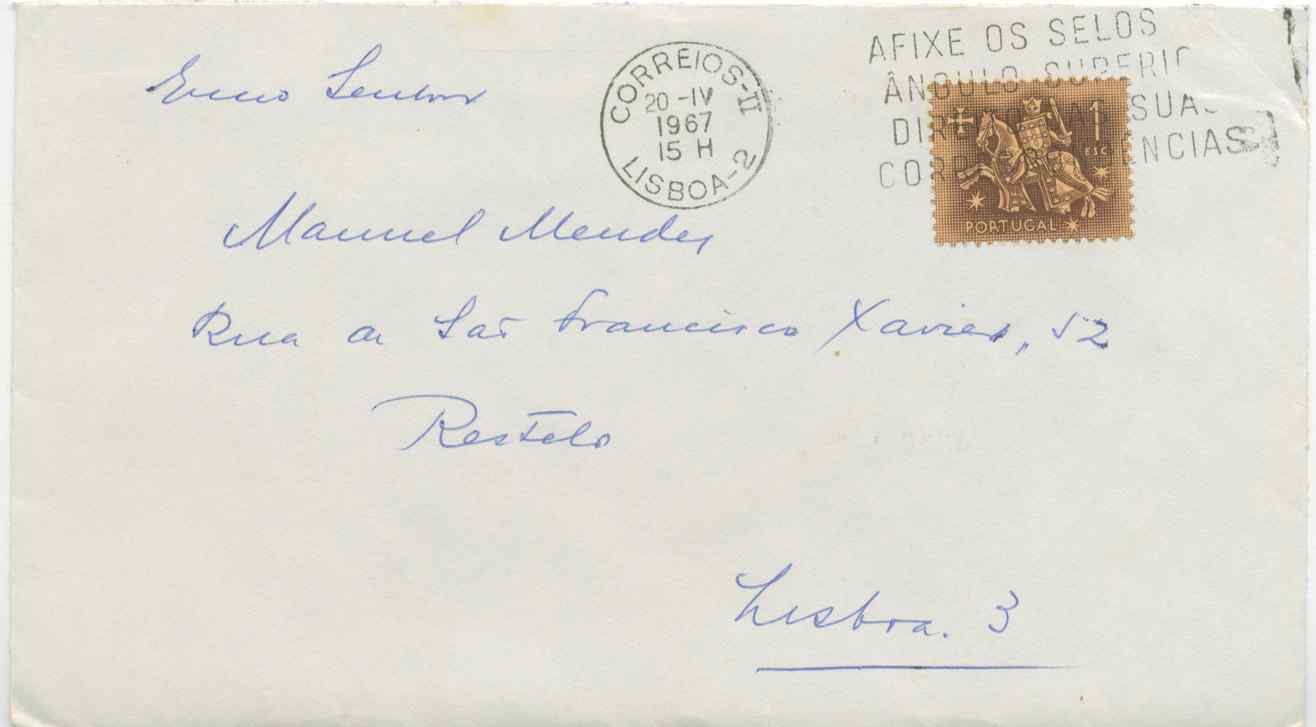 Exmo Senhor
CORREIOS-II
20-IV
1967
15 H
LISBOA-2
AFIXE OS SELOS
ÂNGULO SUPERIO
DIR SUAS
COR ENCIAS
1
ESC.
PORTUGAL
Manuel Mendes
Rua de São Francisco Xavier, 52
Restelo
Lisboa. 3